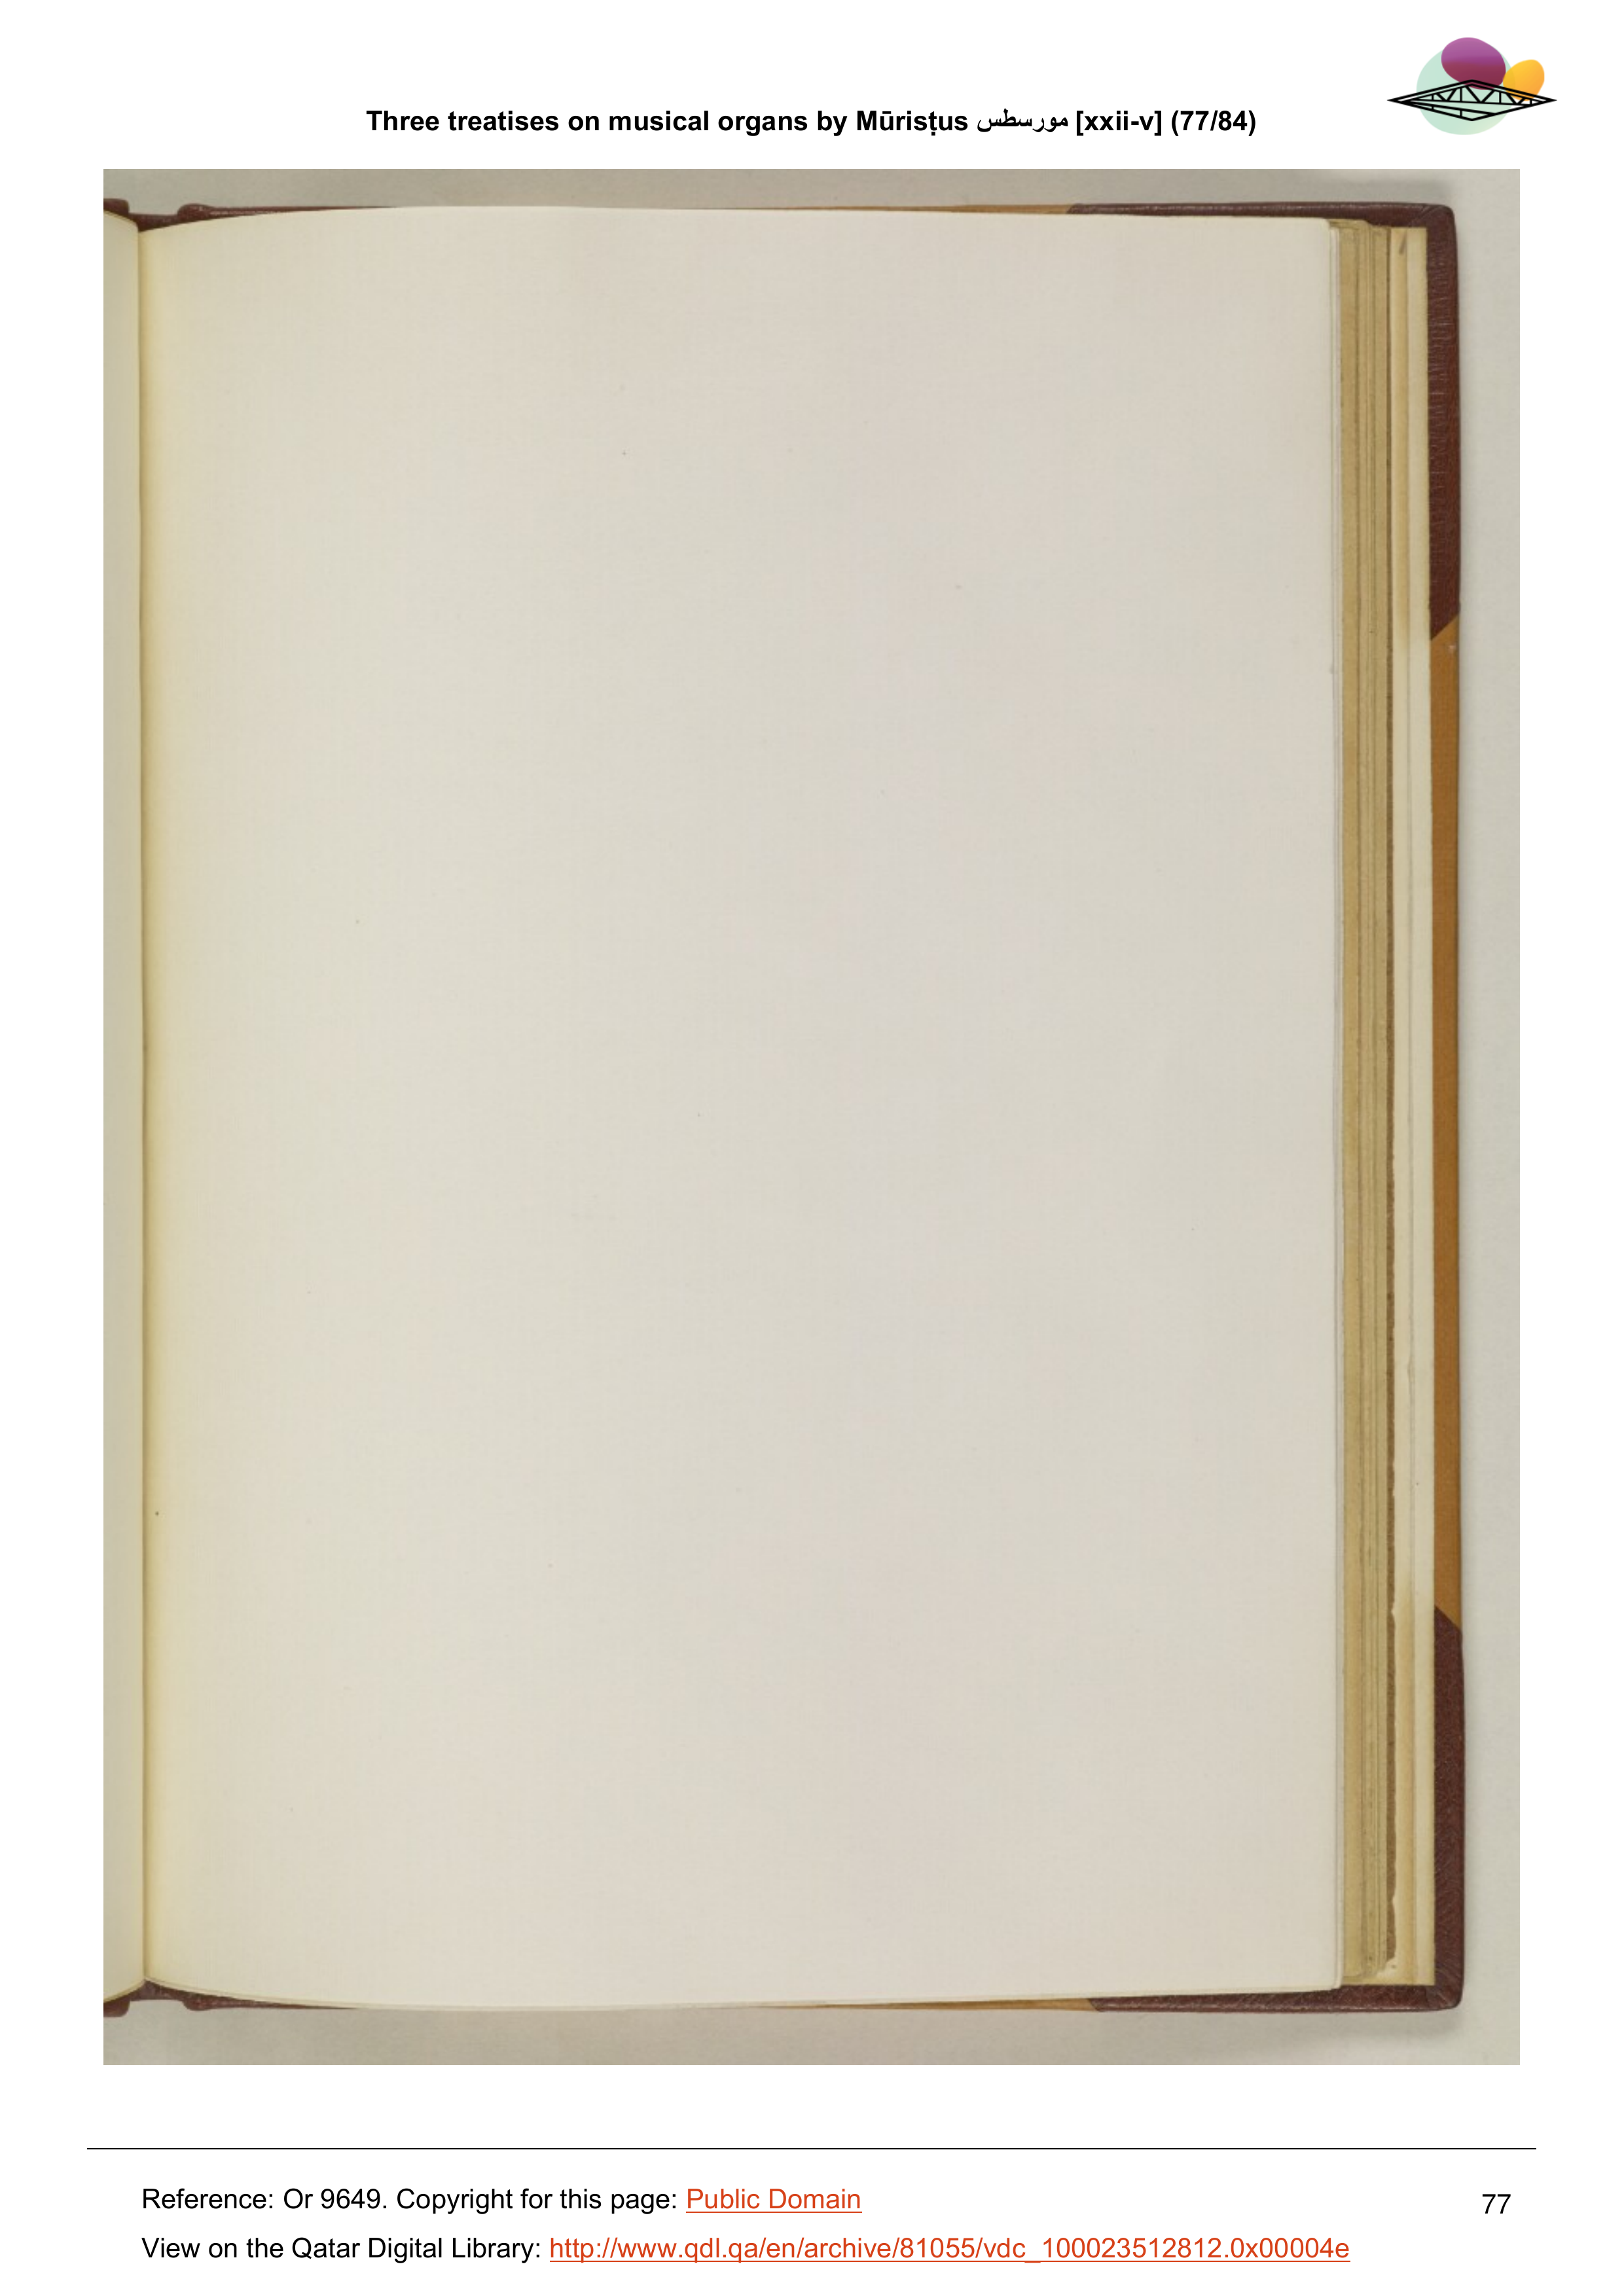 Three treatises on musical organs by Mūrisṭus مورسطس [xxii-v] (77/84)
Reference: Or 9649. Copyright for this page: Public Domain
77
View on the Qatar Digital Library: http://www.qdl.qa/en/archive/81055/vdc_100023512812.0x00004e